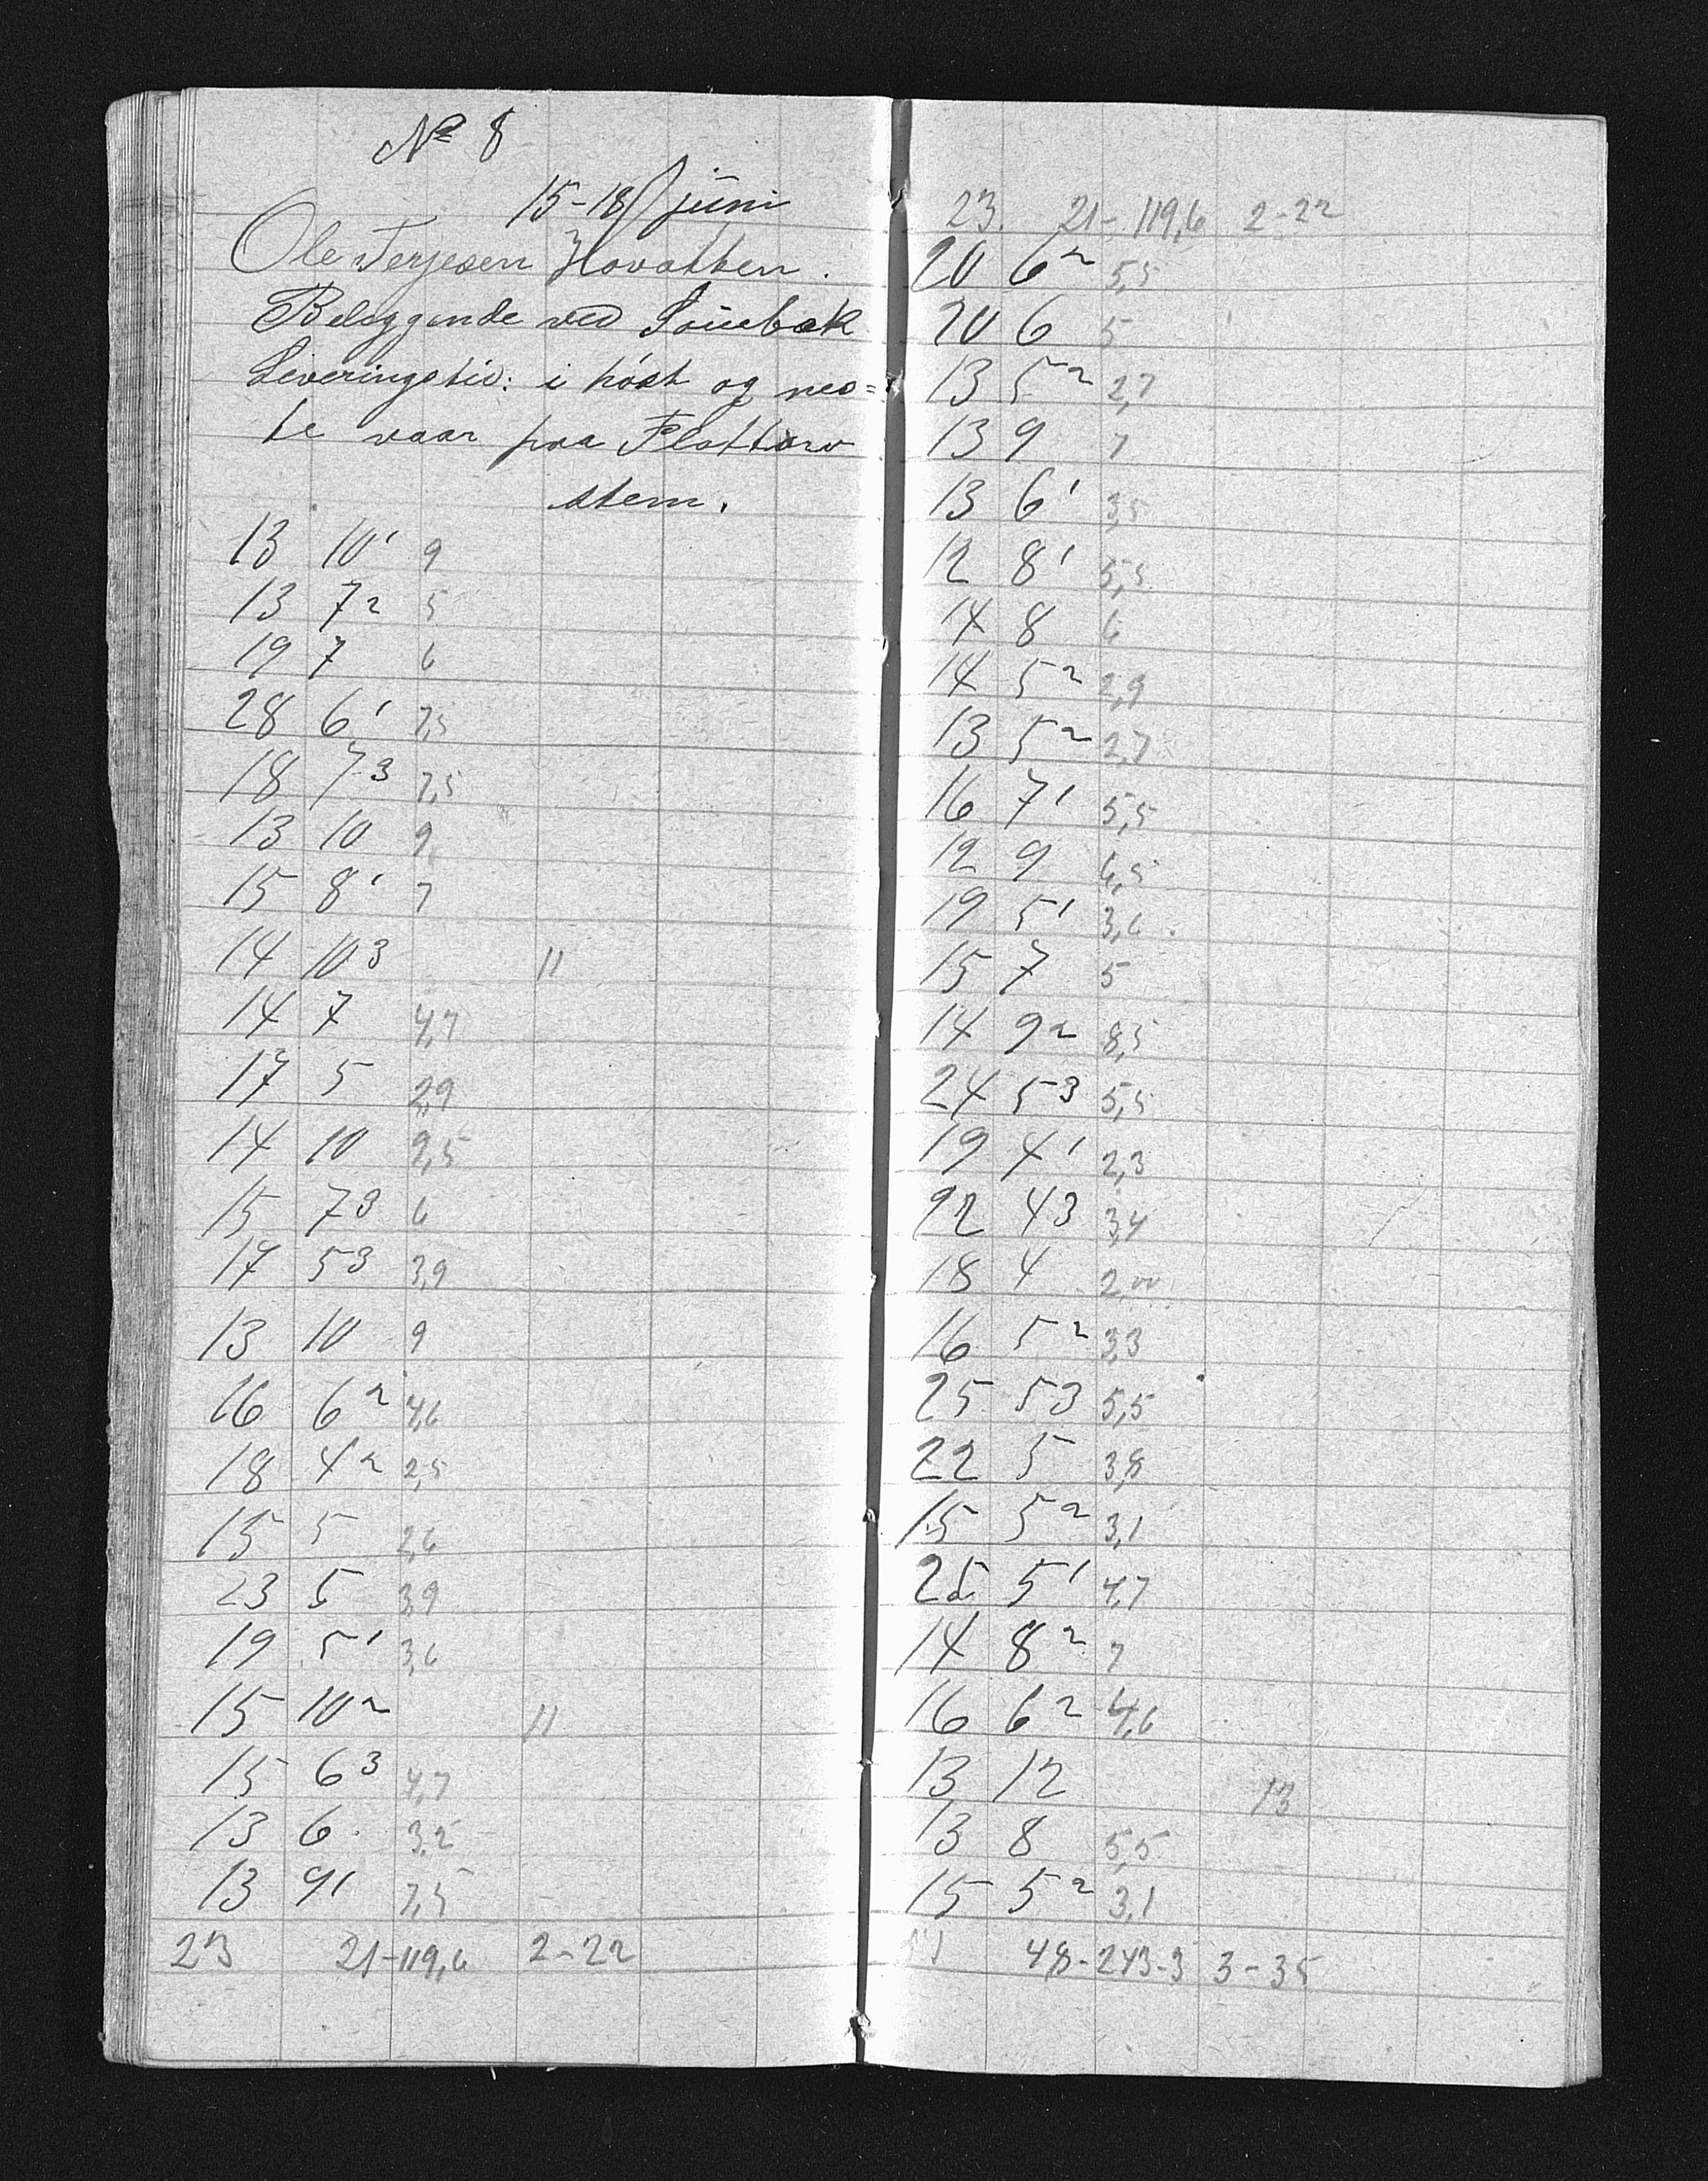 No 8
15-18/ juni
Ole Terjesen Hovatten.
Beliggende ved
Leveringstid: i høst og nes=
te vaar paa Flottarv
stem.
13 10' 9
13 7 2 5
19 7 6
28 6' 7,5
18 7 3 7,5
13 10 9
15 8' 7
14 10 3 11
14 7 4,7
17 5 2,9
14 10 9,5
15 7 3 6
17 5 3 3,9
13 10 9
16 6 2 4,6
18 4 2 2,5
15 5 2,6
23 5 3,9
19 5' 3,6
15 10 2 11
15 6 3 4,7
13 6 3,2
13 9' 7,5
23 21-119,6 2-22
23. 21-119,6 2-22
20 6 2 5,5
20 6 5
13 5 2 2,7
13 9 7
13 6' 3,5
12 8' 5,5
14 8 6
14 5 2 2,9
13 5 2 2,7
16 7' 5,5
12 9 6,5
19 5' 3,6
15 7 5
14 9 2 8,5
24 5 3 5,5
19 4' 2,3
22 4 3 3,4
18 4 2,00
16 5 2 3,3
25 5 3 5,5
22 5 3,8
15 5 2 3,1
25 5' 4,7
14 8 2 7
16 6 2 4,6
13 12 13
13 8 5,5
15 5 2 3,1
48-243-3 3-35